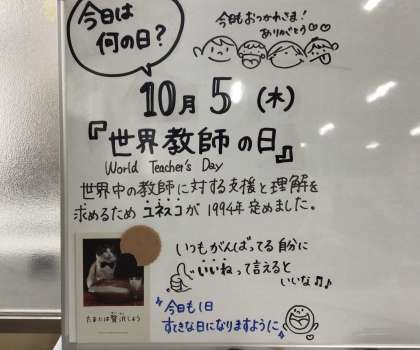 今日は
何の日?
今日もおつかれさま!
ありがとう♡♡
10月5(木)
『世界教師の日』
World Teacher's Day
世界中の教師に対する支援と理解を
求めるためユネスコが1994年定めました。
いつもがんばってる自分に
いいねって言えると
いいな♫♪
たまには贅沢しよう
今日も1日
すてきな日になりますように